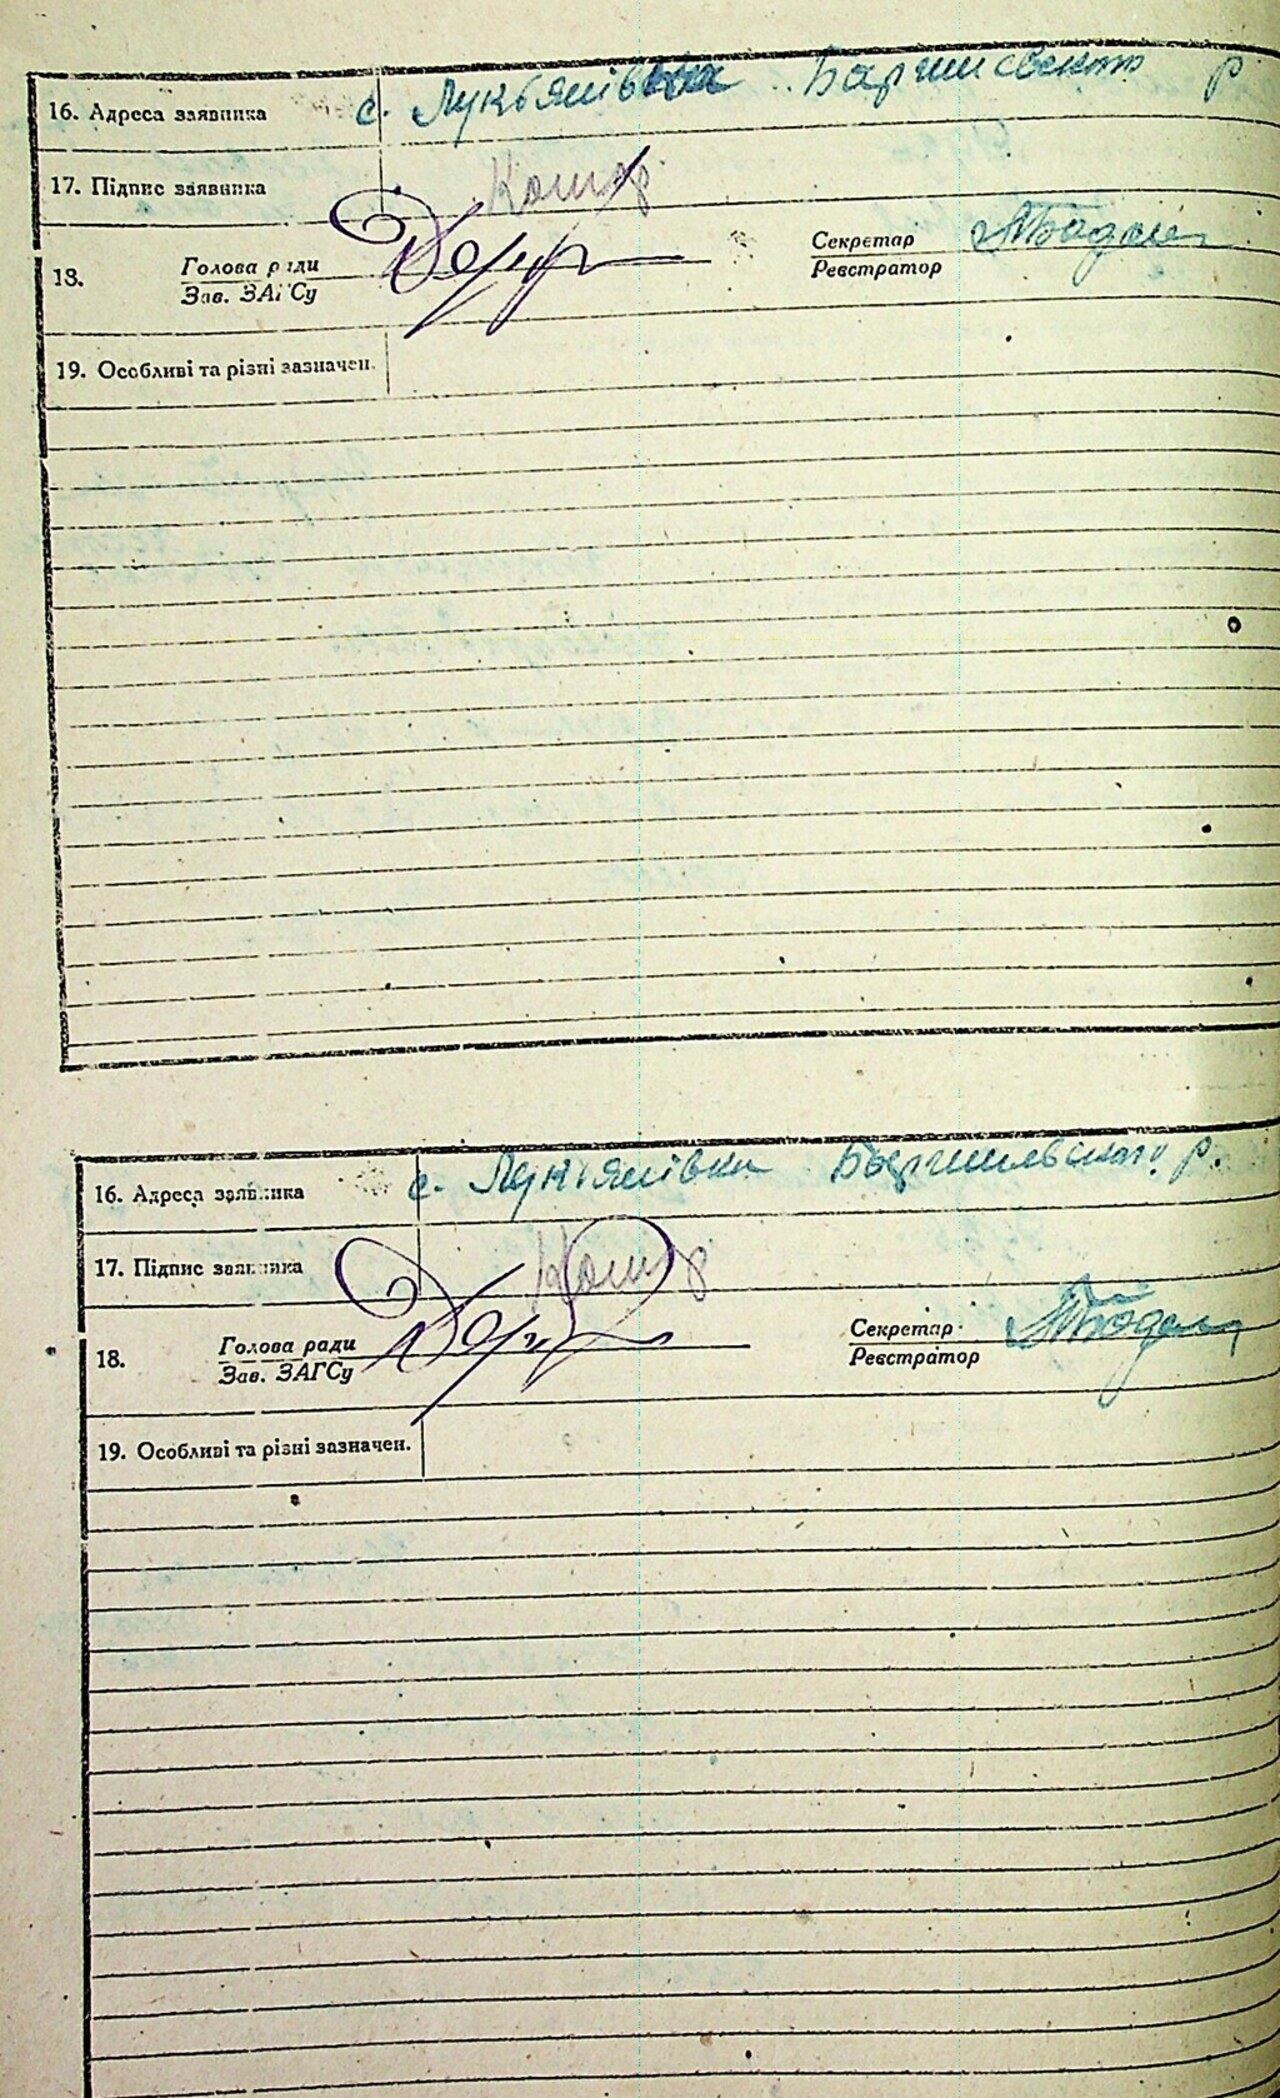 16. Адреса заявника с. Лукьянівка Баришевського р
17. Підпис заявника
18. Голова ради Секретар
Зав. ЗАГСу Реєстратор
19. Особливі та різні зазначен.
16. Адреса заявника с. Лукьянівка Баришевського р.
17. Підпис заявника
18. Голова ради Секретар
Зав. ЗАГСу Реєстратор
19. Особливі та різні зазначен.